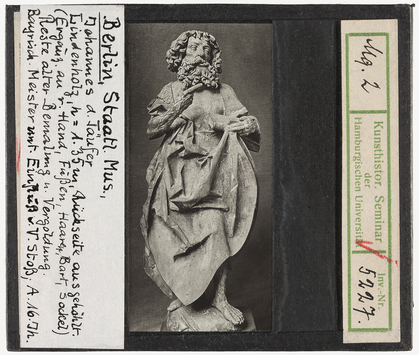 Berlin, Staatl. Mus.
Johannes d. Täufer
Lindenholz, h = 1.35 m, Rückseite ausgehöhlt
(Ergzg. an r. Hand, Füßen, Haare, Bart, Sockel)
Reste alter Bemalung u. Vergoldung,
Bayrisch. Meister unt. Einfluß v. V. Stoß, A. 16. Jh.
Mg. 2
Kunsthistor. Seminar
der
Hamburgischen Universität
Inv.-Nr.
5227.